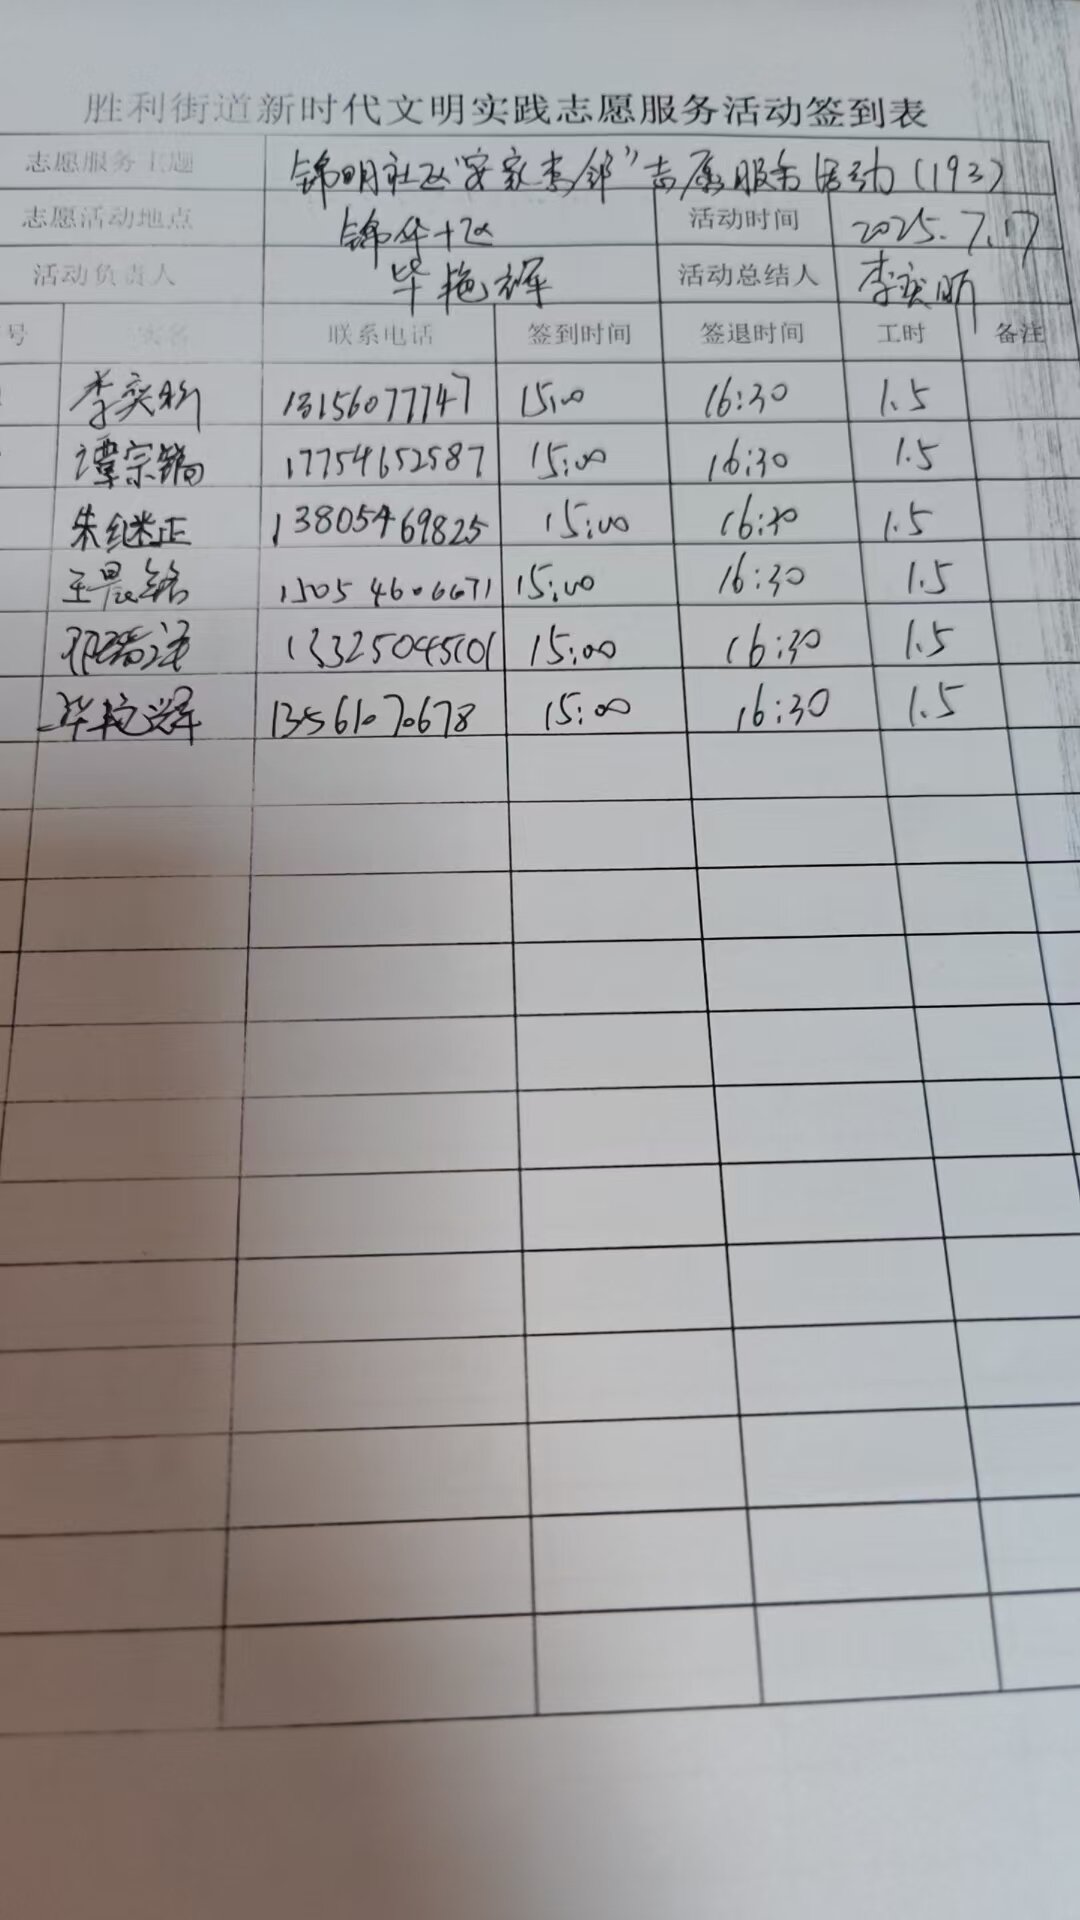 胜利街道新时代文明实践志愿服务活动签到表
志愿服务主题 锦明社区“安家李邻”志愿服务活动(193)
志愿活动地点 锦华十区 活动时间 2025.7.17
活动负责人 毕艳辉 活动总结人 李奕昕
号 实名 联系电话 签到时间 签退时间 工时 备注
李奕昕 13156077747 15:00 16:30 1.5
谭宗锡 17754652587 15:00 16:30 1.5
朱继正 13805469825 15:00 16:30 1.5
王晨铭 15054606671 15:00 16:30 1.5
13325045101 15:00 16:30 1.5
毕艳辉 13561070678 15:00 16:30 1.5